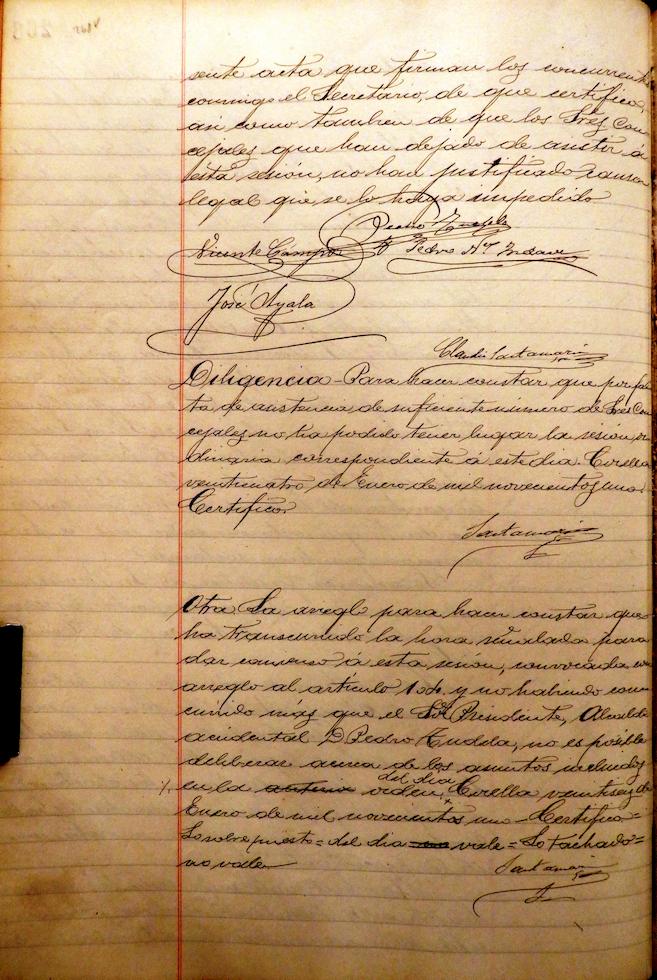 sente acta que firman los concurrentes
conmigo el Secretario, de que certifico,
asi como tambien de que los Sres Con-
cejales que han dejado de asistir á
ésta sesión, no han justificado causa
legal que se lo haya impedido
Pedro Tudela
Vicente Cámpos Pedro Mª
José Ayala
Claudio Santamaria
Diligencia - Para hacer constar que por fal-
ta de asistencia de suficiente número de Sres Con-
cejales no ha podido tener lugar la sesión or-
dinaria correspondiente á este dia. Corella
veinticuatro de Enero de mil novecientos uno.
Certifico.
Santamaria
Otra La arreglo para hacer constar que
ha transcurrido la hora señalada para
dar comienzo á esta sesion, convocada con
arreglo al artículo 104 y no habiendo con-
currido más que el Sor Presidente, Alcalde
accidental D Pedro Tudela, no es posible
deliberar acerca de los asuntos incluidos
del dia
en la orden, Corella veintiseis de
Enero de mil novecientos uno - Certifico =
Lo sobrepuesto = del dia vale = Lo tachado =
no vale
Santamaria